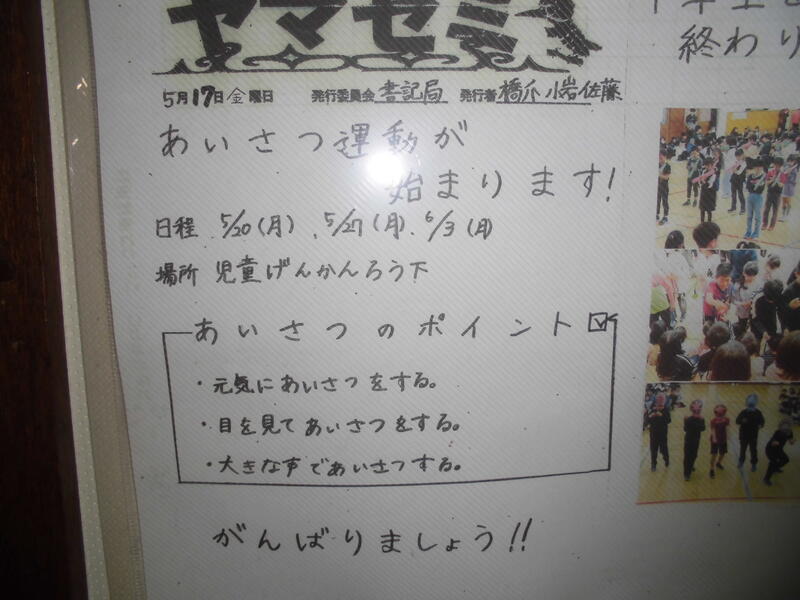 ヤマセミ
終わり
5月17日金曜日 発行委員会 書記局 発行者 橋爪 小岩 佐藤
あいさつ運動が
始まります!
日程 5/20(月)、5/27(月)、6/3(月)
場所 児童げんかんろう下
あいさつのポイント
・元気にあいさつをする。
・目を見てあいさつをする。
・大きな声であいさつする。
がんばりましょう!!